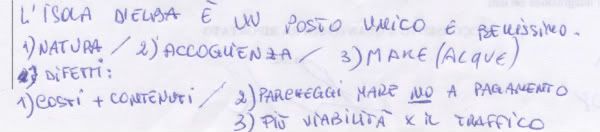 L'ISOLA D'ELBA È UN POSTO UNICO E BELLISSIMO.
1) NATURA / 2) ACCOGLIENZA / 3) MARE (ACQUE)
DIFETTI:
1) COSTI + CONTENUTI / 2) PARCHEGGI MARE NO A PAGAMENTO
3) PIÙ VIABILITÀ X IL TRAFFICO